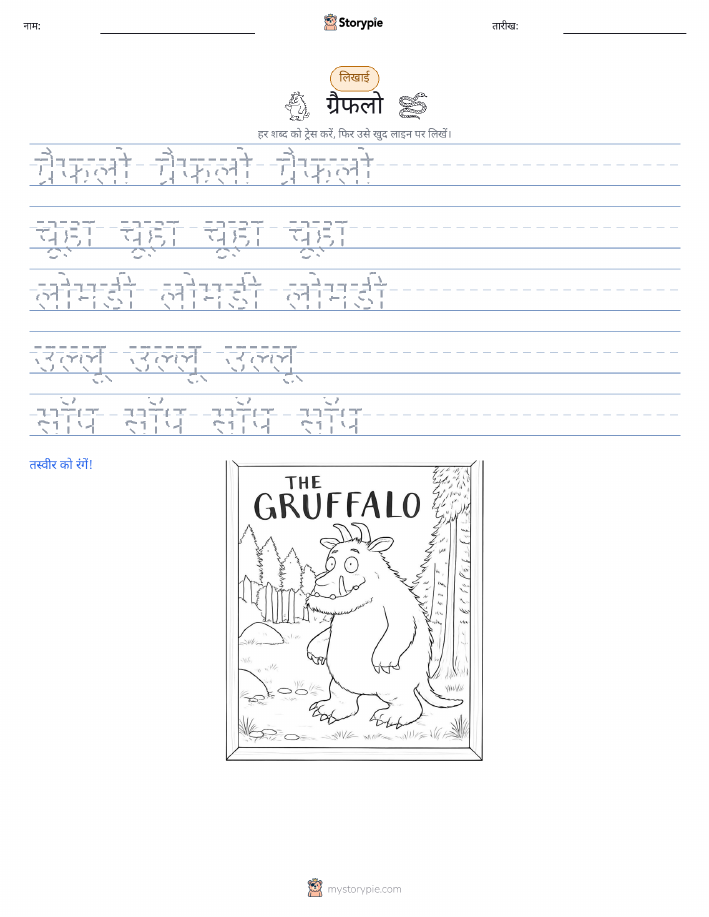 नाम: Storypie तारीख:
लिखाई
ग्रैफलो
हर शब्द को ट्रेस करें, फिर उसे खुद लाइन पर लिखें।
ग्रैफलो ग्रैफलो ग्रैफलो
चूहा चूहा चूहा चूहा
लोमड़ी लोमड़ी लोमड़ी
उल्लू उल्लू उल्लू
साँप साँप साँप साँप
तस्वीर को रंगें!
THE
GRUFFALO
mystorypie.com